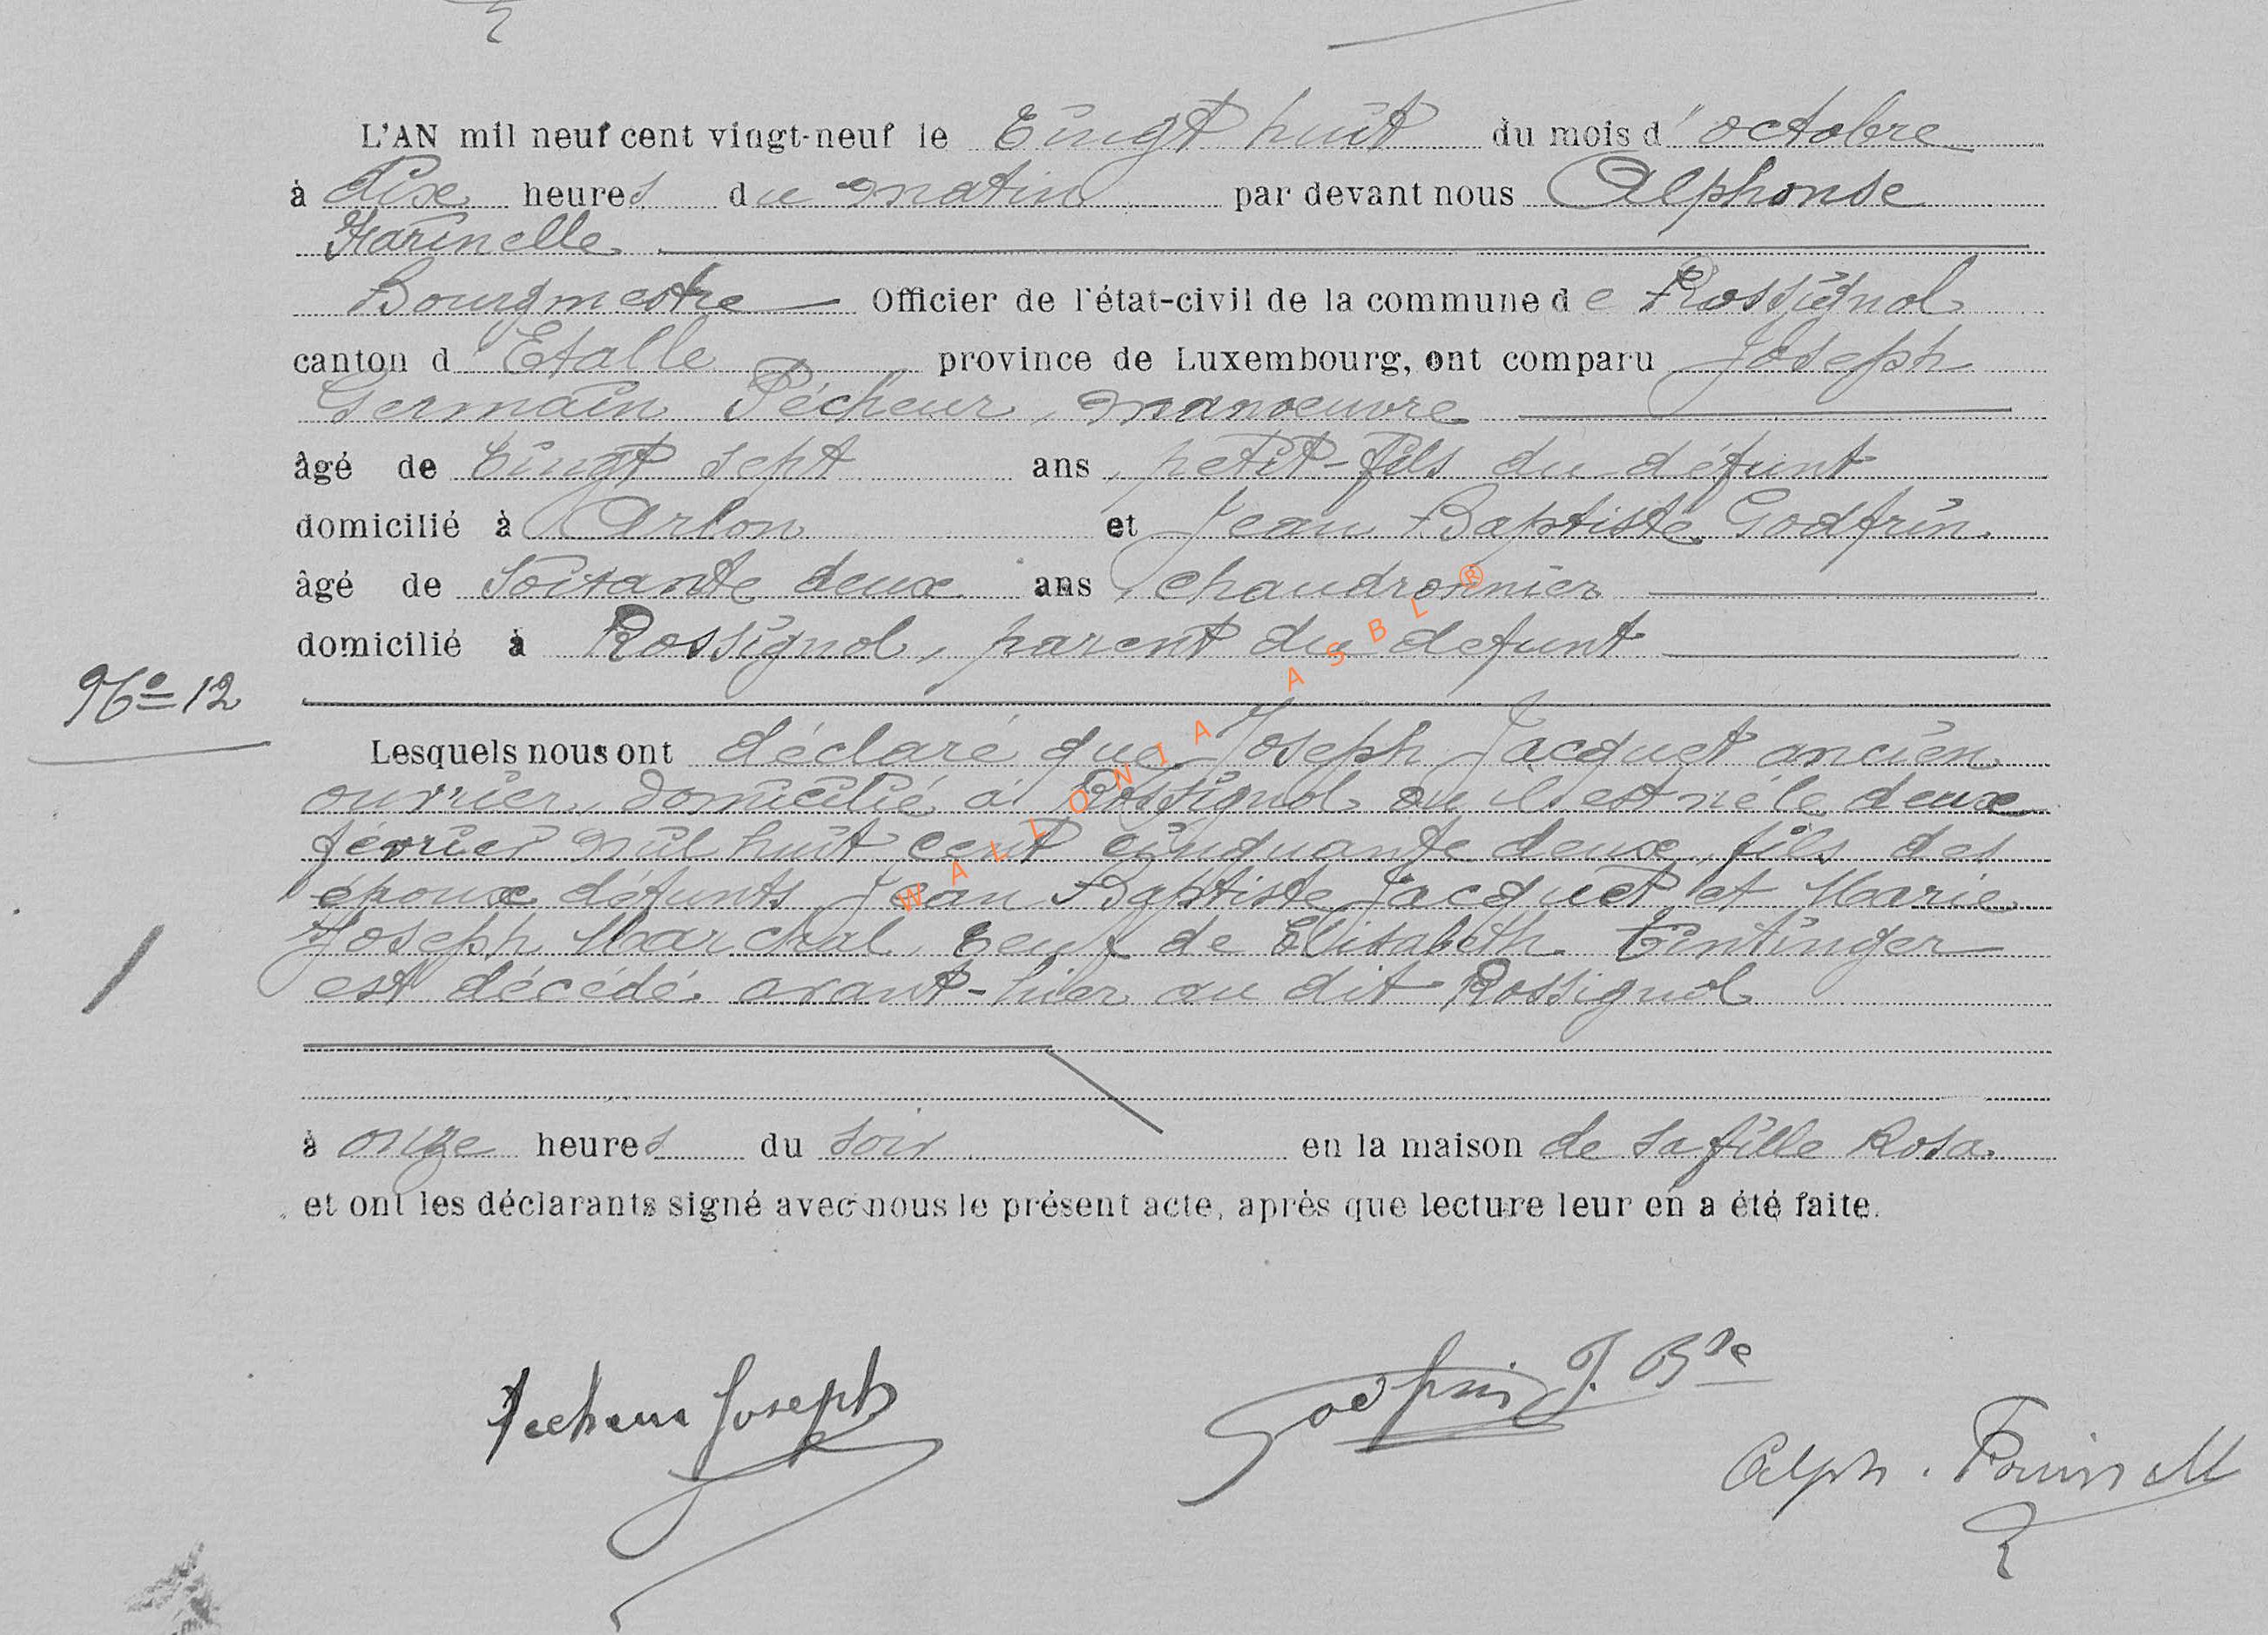 L'AN mil neuf cent vingt-neuf le Vingt huit du mois d' octobre
à dix heures du matin par devant nous Alphonse
Farinelle
Bourgmestre Officier de l'état-civil de la commune de Rossignol
canton d' Etalle province de Luxembourg, ont comparu Joseph
Germain Pécheur, manoeuvre
âgé de Vingt sept ans, petit-fils du défunt
domicilié à Arlon et Jean Baptiste Godfrin.
âgé de Soixante deux ans, chaudronnier
domicilié à Rossignol, parent du defunt
No 12
Lesquels nous ont déclaré que Joseph Jacquet ancien
ouvrier, domicilié à Rossignol où il est né le deux
février mil huit cent cinquante deux, fils des
époux défunts Jean Baptiste Jacquet et Marie
Joseph Marchal, Veuf de Elisabeth Tintinger
est décédé avant-hier au dit Rossignol
à onze heures du soir en la maison de sa fille Rosa.
et ont les déclarants signé avec nous le présent acte, après que lecture leur en a été faite.
Pecheur Joseph
Godfrin J. Bte
Alph. Farinelle
WALLONIA ASBL ®